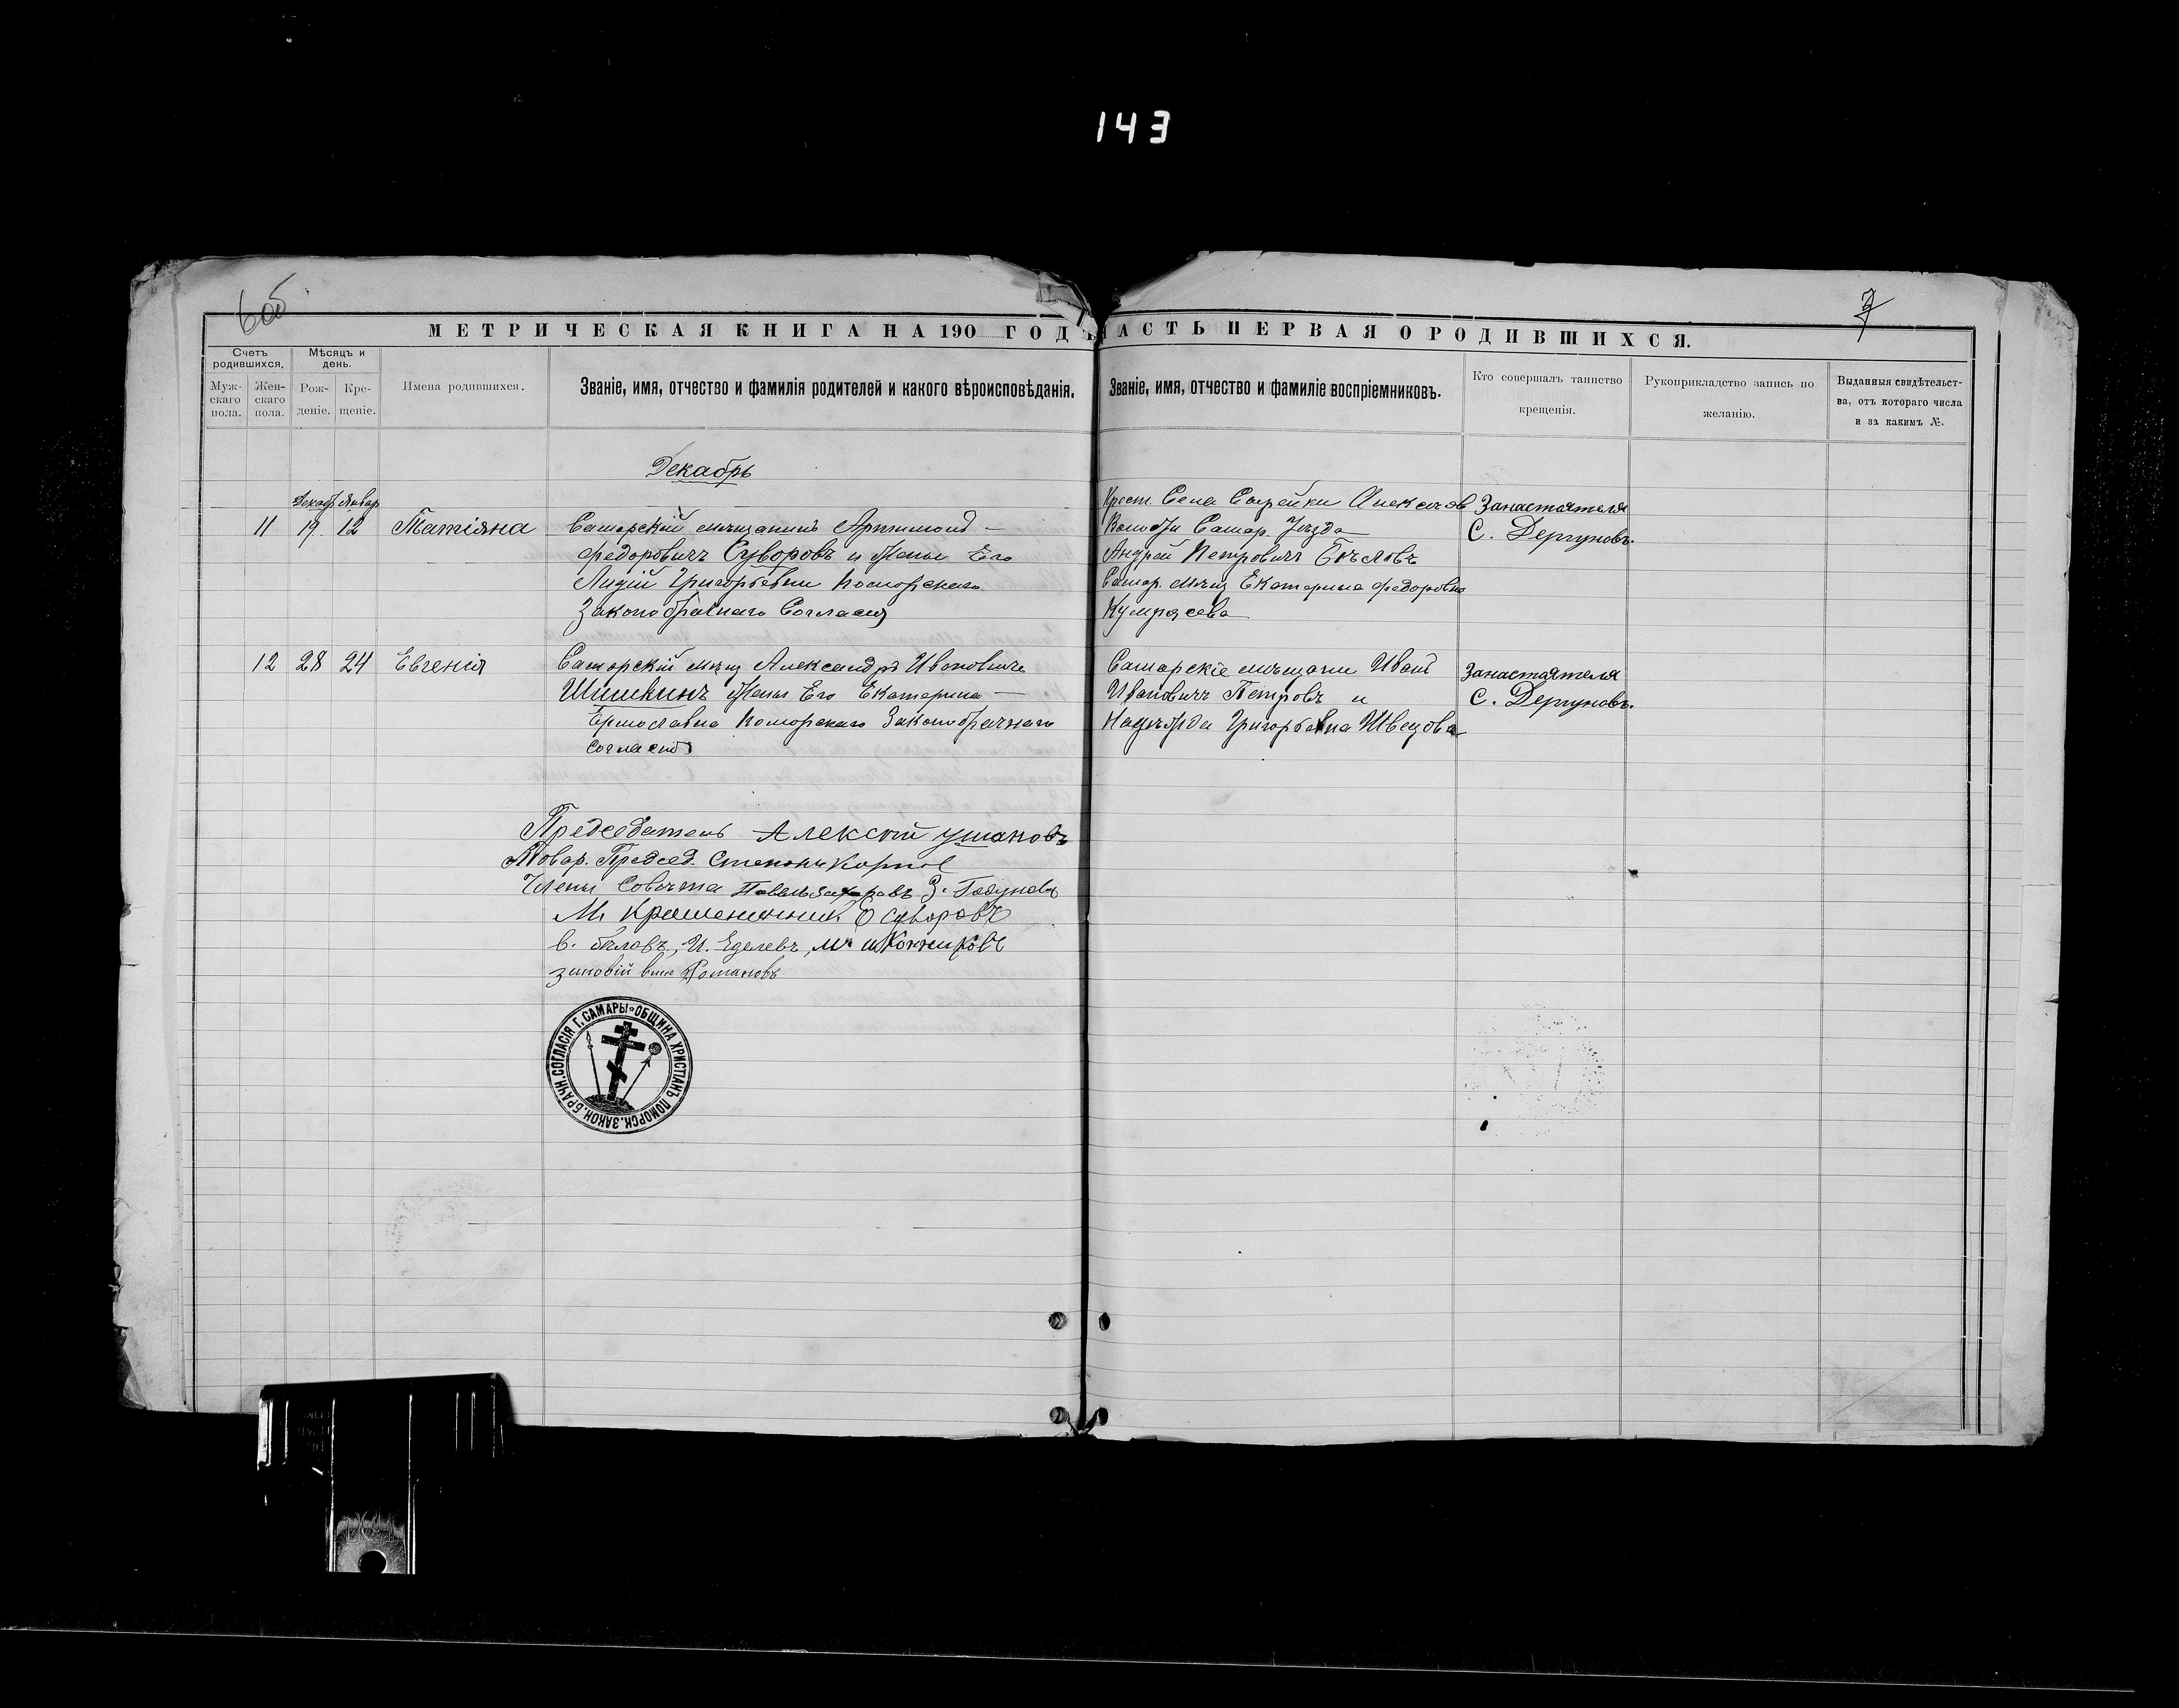 143
6об
7
МЕТРИЧЕСКАЯ КНИГА НА 190 ГОДЪ
ЧАСТЬ ПЕРВАЯ О РОДИВШИХСЯ.
Счетъ родившихся.
Мѣсяцъ и день.
Муж-скаго пола.
Жен-скаго пола.
Рож-деніе.
Кре-щеніе.
Имена родившихся.
Званіе, имя, отчество и фамилія родителей и какого вѣроисповѣданія.
Званіе, имя, отчество и фамиліе воспріемниковъ.
Кто совершалъ таинство крещенія.
Рукоприкладство запись по желанію.
Выданныя свидѣтельст-ва, отъ котораго числа и за какимъ №.
Декабрь
Декабр Январ
11 19. 12 Татіяна
Самарскій мѣщанинъ
Федоровичъ Суворовъ и Жены Его
Лидіи Григорьевны Поморскаго
Законобрачнаго Согласія
Крест. Села Сырейки
Самар. Уѣзда
Андрей Петровичъ Бѣловъ
Самар. мѣщ Екатерина Федоровна
Занастоятеля
С. Дергуновъ.
12 28 24 Евгенія
Самарскій мѣщ Александръ Ивановичъ
Шишкинъ Жены Его Екатерина
Поморскаго Законобрачнаго
согласія
Самарскіе мѣщани Иванъ
Ивановичъ Петровъ и
Надѣжда Григорьевна Швецова
Занастоятеля
С. Дергуновъ.
Председатель Алексѣй Ушановъ
Товар. Председ. Степанъ
Члены Совѣта Павелъ Захаровъ З. Годуновъ
М. Крашенинник Ѳ Суворовъ
в. бѣловъ, И. Еделевъ, М.
зиновій Романовъ
ОБЩИНА ХРИСТІАНЪ ПОМОРСК. ЗАКОН. БРАЧН. СОГЛАСІЯ Г. САМАРЫ